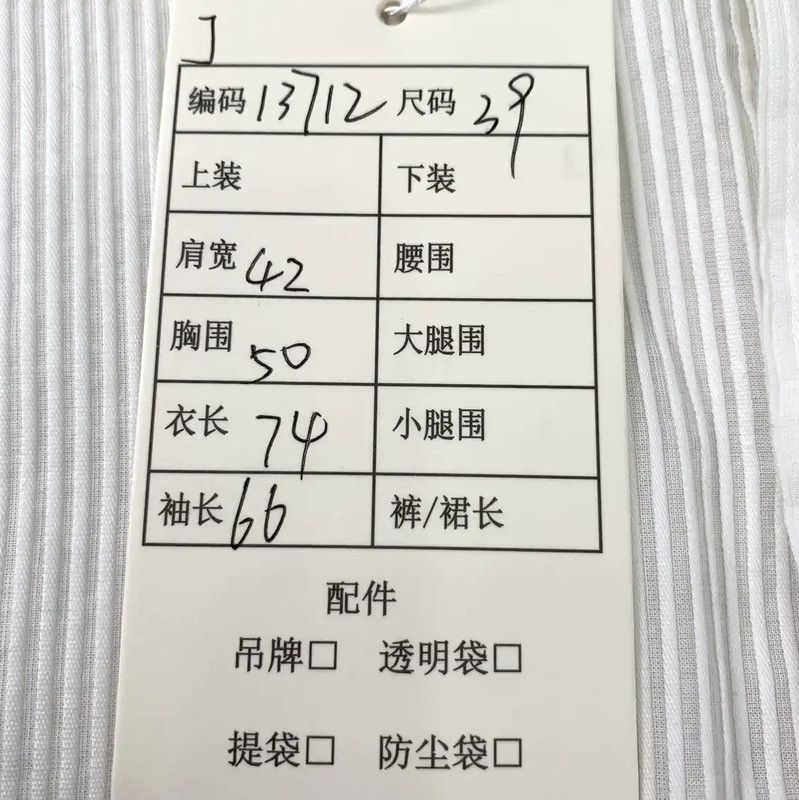 J
编码 13712 尺码 39
上装 下装
肩宽 42 腰围
胸围 50 大腿围
衣长 74 小腿围
袖长 66 裤/裙长
配件
吊牌□ 透明袋□
提袋□ 防尘袋□